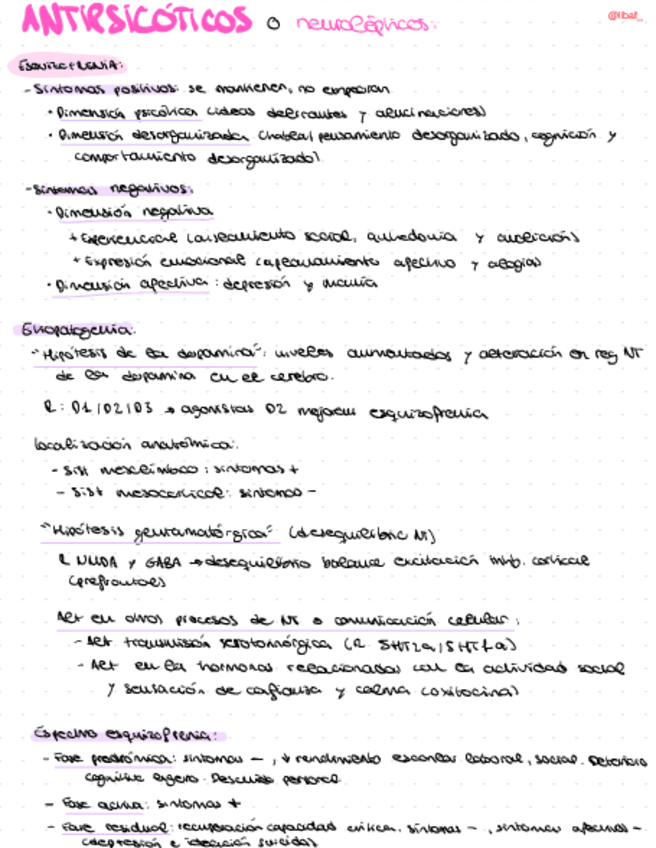 ANTIPSICÓTICOS o neurolépticos:
@libal_
ESQUIZOFRENIA:
- Síntomas positivos: se mantienen, no empeoran
· Dimensión psicótica (ideas delirantes y alucinaciones)
· Dimensión desorganizada (habla/pensamiento desorganizado, cognición y
comportamiento desorganizado)
- Síntomas negativos:
· Dimensión negativa
+ Experiencial (aislamiento social, anhedonia y abolición)
+ Expresión emocional (aplanamiento afectivo y alogia)
· Dimensión afectiva: depresión y manía
Etiopatogenia:
"Hipótesis de la dopamina": niveles aumentados y alteración en reg NT
de la dopamina en el cerebro.
R: D1/D2/D3 → agonistas D2 mejoran esquizofrenia
localización anatómica:
- Sist mesolímbico: síntomas +
- Sist mesocortical: síntomas -
"Hipótesis glutamatérgica" (desequilibrio NT)
R NMDA y GABA → desequilibrio balance excitación inhib. cortical
(prefrontal)
Alt en otros procesos de NT o comunicación celular:
- Alt transmisión serotoninérgica (R 5HT2a/5HT1a)
- Alt en la hormonas relacionadas con la actividad social
y sensación de confianza y calma (oxitocina)
Espectro esquizofrenia:
- Fase prodrómica: síntomas -, ↓ rendimiento escolar laboral, social. Deterioro
cognitivo ligero. Descuido personal
- Fase activa: síntomas +
- Fase residual: recuperación capacidad crítica. síntomas -, síntomas afectivos -
(depresión e ideación suicida)